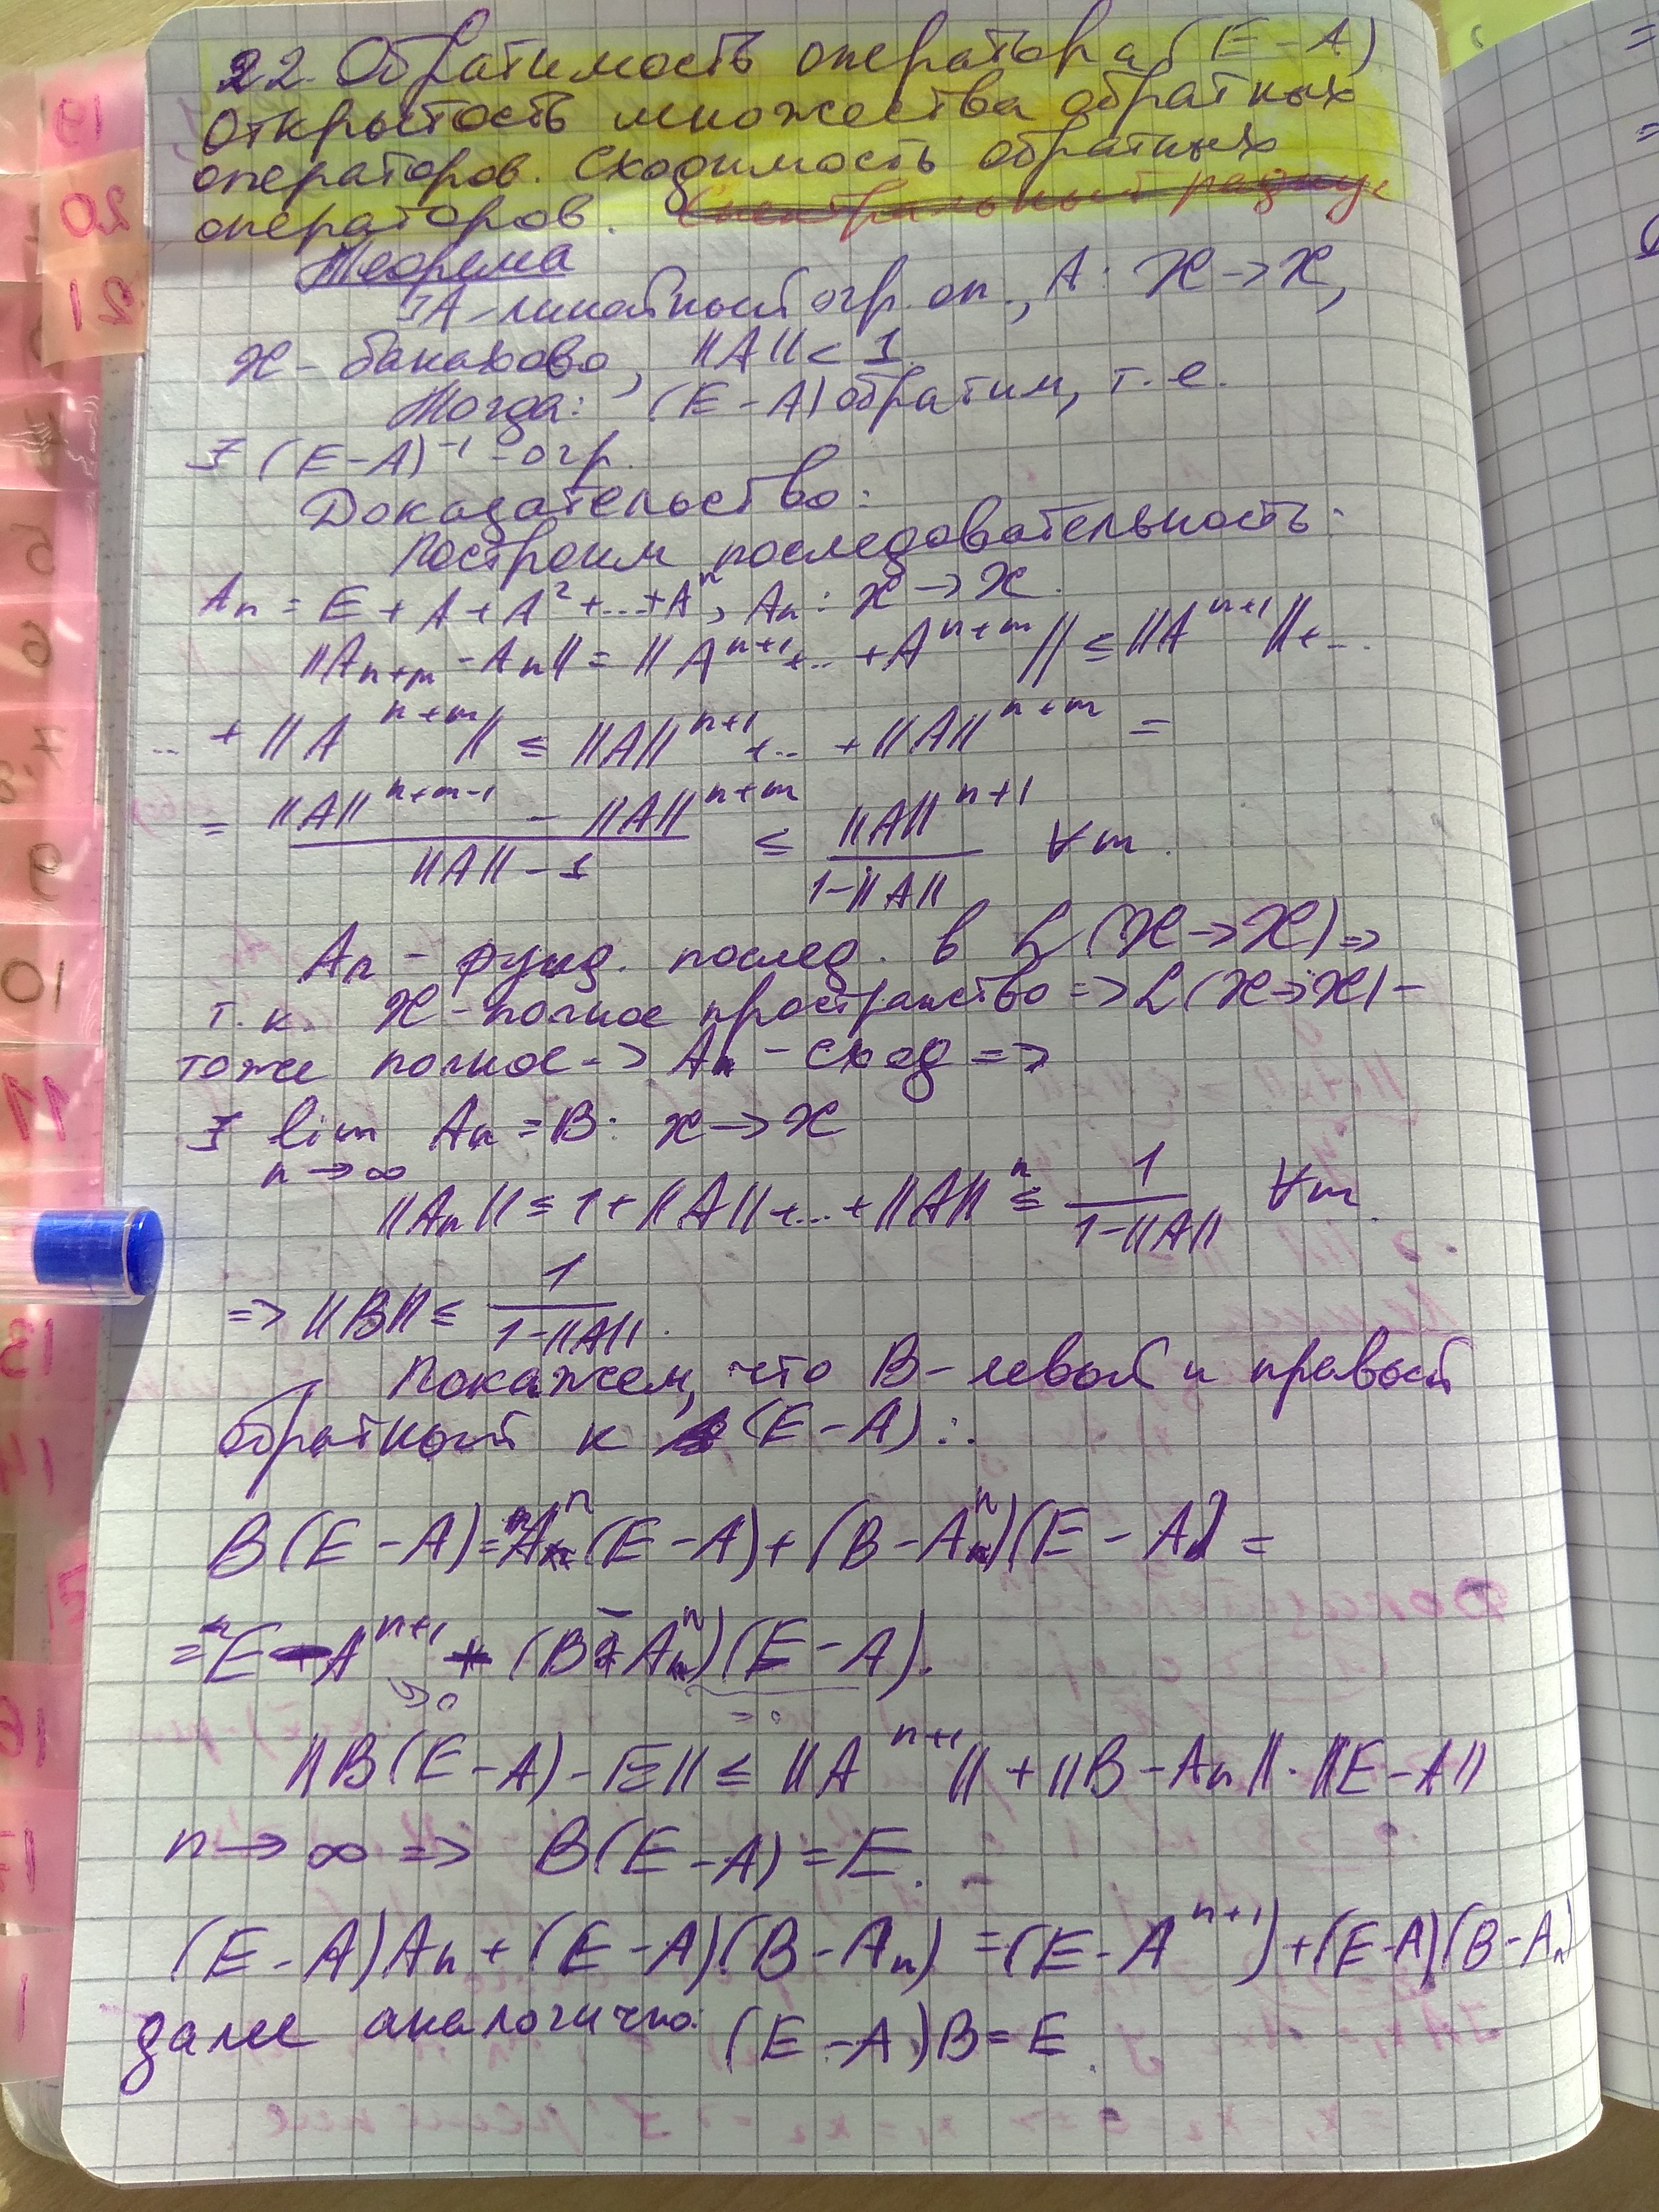 22. Обратимость оператора (E-A)
Открытость множества обратных
операторов. Сходимость обратных
операторов. Спектральный радиус
Теорема
]A-линейный огр. оп., A: X→X,
X-банахово, ||A|| < 1.
Тогда: (E-A) обратим, т.е.
∃ (E-A)⁻¹ - огр.
Доказательство:
Построим последовательность:
Aₙ = E + A + A² +...+Aⁿ, Aₙ: X→X.
||Aₙ₊ₘ - Aₙ|| = ||Aⁿ⁺¹+...+Aⁿ⁺ᵐ|| ≤ ||Aⁿ⁺¹||+...
...+||Aⁿ⁺ᵐ|| ≤ ||A||ⁿ⁺¹+...+||A||ⁿ⁺ᵐ =
= (||A||ⁿ⁺ᵐ⁻¹ - ||A||ⁿ⁺ᵐ) / (||A|| - 1) ≤ ||A||ⁿ⁺¹ / (1-||A||) ∀m.
Aₙ - фунд. послед. в L(X→X) =>
т.к. X-полное пространство => L(X→X) -
тоже полное -> Aₙ - сход =>
∃ lim n→∞ Aₙ = B: X→X
||Aₙ|| ≤ 1+||A||+...+||A||ⁿ ≤ 1 / (1-||A||) ∀m.
=> ||B|| ≤ 1 / (1-||A||).
Покажем, что B-левый и правый
обратный к (E-A):.
B(E-A) = Aⁿ(E-A) + (B-Aⁿ)(E-A) =
= E - Aⁿ⁺¹ + (B-Aⁿ)(E-A).
→0 =0
||B(E-A)-E|| ≤ ||Aⁿ⁺¹|| + ||B-Aₙ||·||E-A||
n→∞ => B(E-A) = E.
(E-A)Aₙ + (E-A)(B-Aₙ) = (E-Aⁿ⁺¹) + (E-A)(B-Aₙ)
далее аналогично: (E-A)B = E.
19
20
21
5
6
9
10
11
13
14
15
1